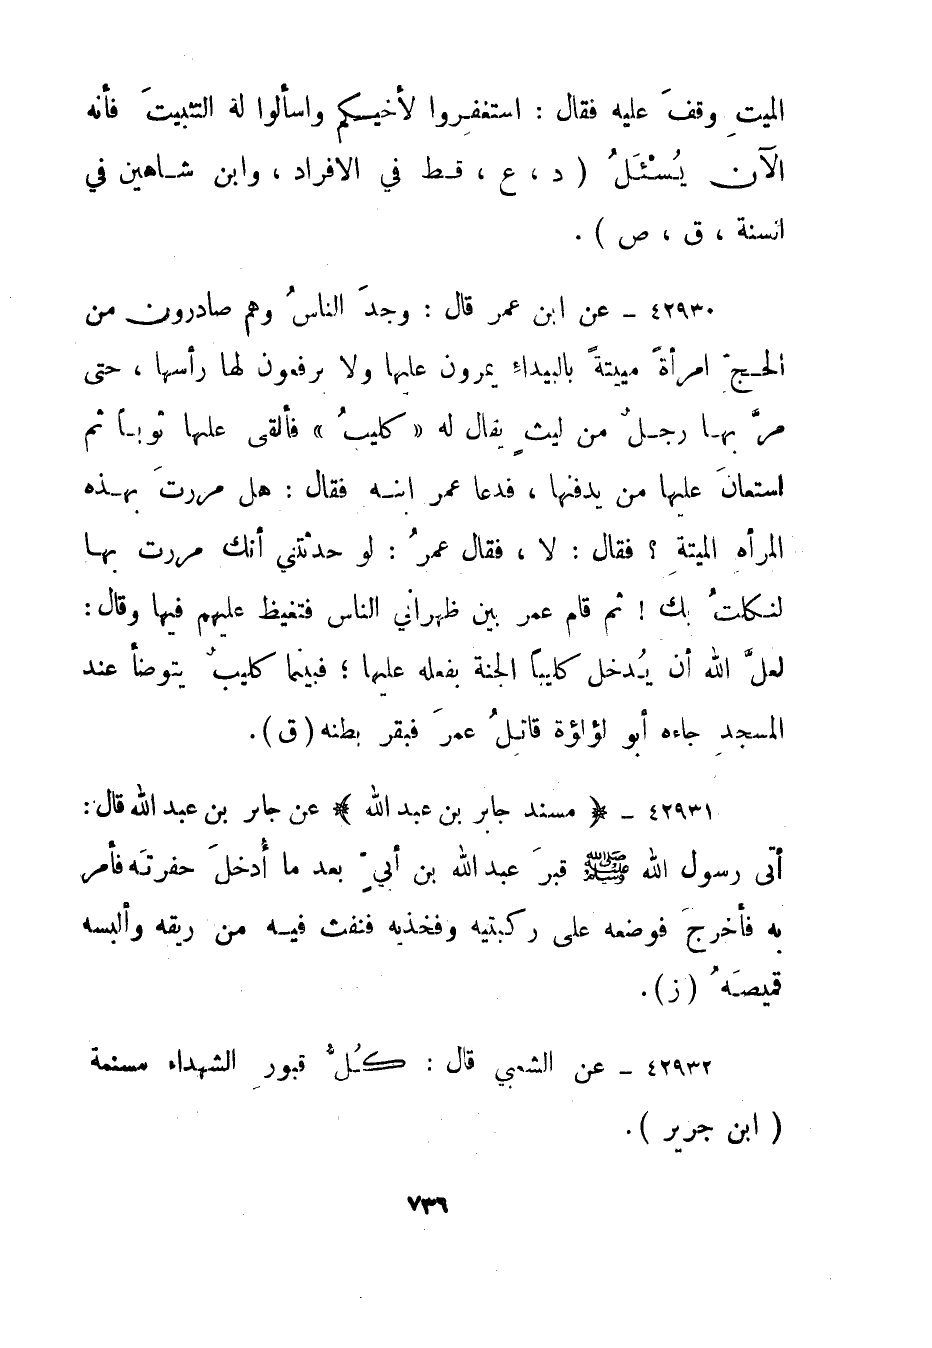 الميتِ وقفَ عليه فقال : استغفروا لأخيكم واسألوا له التثبيتَ فأنه
الآن يُسْئَلُ ( د ، ع ، قط في الافراد ، وابن شاهين في
السنة ، ق ، ص ) .
٤٢٩٣٠ ـ عن ابن عمر قال : وجدَ الناسُ وهم صادرون من
الحجِّ امرأةً ميتةً بالبيداء يمرون عليها ولا يرفعون لها رأسها ، حتى
مرَّ بها رجلٌ من ليثٍ يقال له « كليبُ » فألقى عليها ثوباً ثم
استعانَ عليها من يدفنها ، فدعا عمر ابنه فقال : هل مررتَ بهذه
المرأه الميتةِ ؟ فقال : لا ، فقال عمرُ : لو حدثتني أنك مررت بها
لنكلتُ بك ! ثم قام عمر بين ظهراني الناس فتغيظ عليهم فيها وقال :
لعلَّ الله أن يُدخل كليباً الجنة بفعله عليها ؛ فبينما كليبٌ يتوضأ عند
المسجدِ جاءه أبو لؤلؤة قاتلُ عمرَ فبقر بطنه ( ق ) .
٤٢٩٣١ ـ ﴿ مسند جابر بن عبد الله ﴾ عن جابر بن عبد الله قال :
أتى رسول الله ﷺ قبرَ عبد الله بن أبيٍّ بعد ما أُدخلَ حفرتَه فأمر
به فأخرجَ فوضعه على ركبتيه وفخذيه فنفث فيه من ريقه وألبسه
قميصَه ُ ( ز ) .
٤٢٩٣٢ ـ عن الشعبي قال : كُلُّ قبورِ الشهداء مسنمة
( ابن جرير ) .
٧٣٦